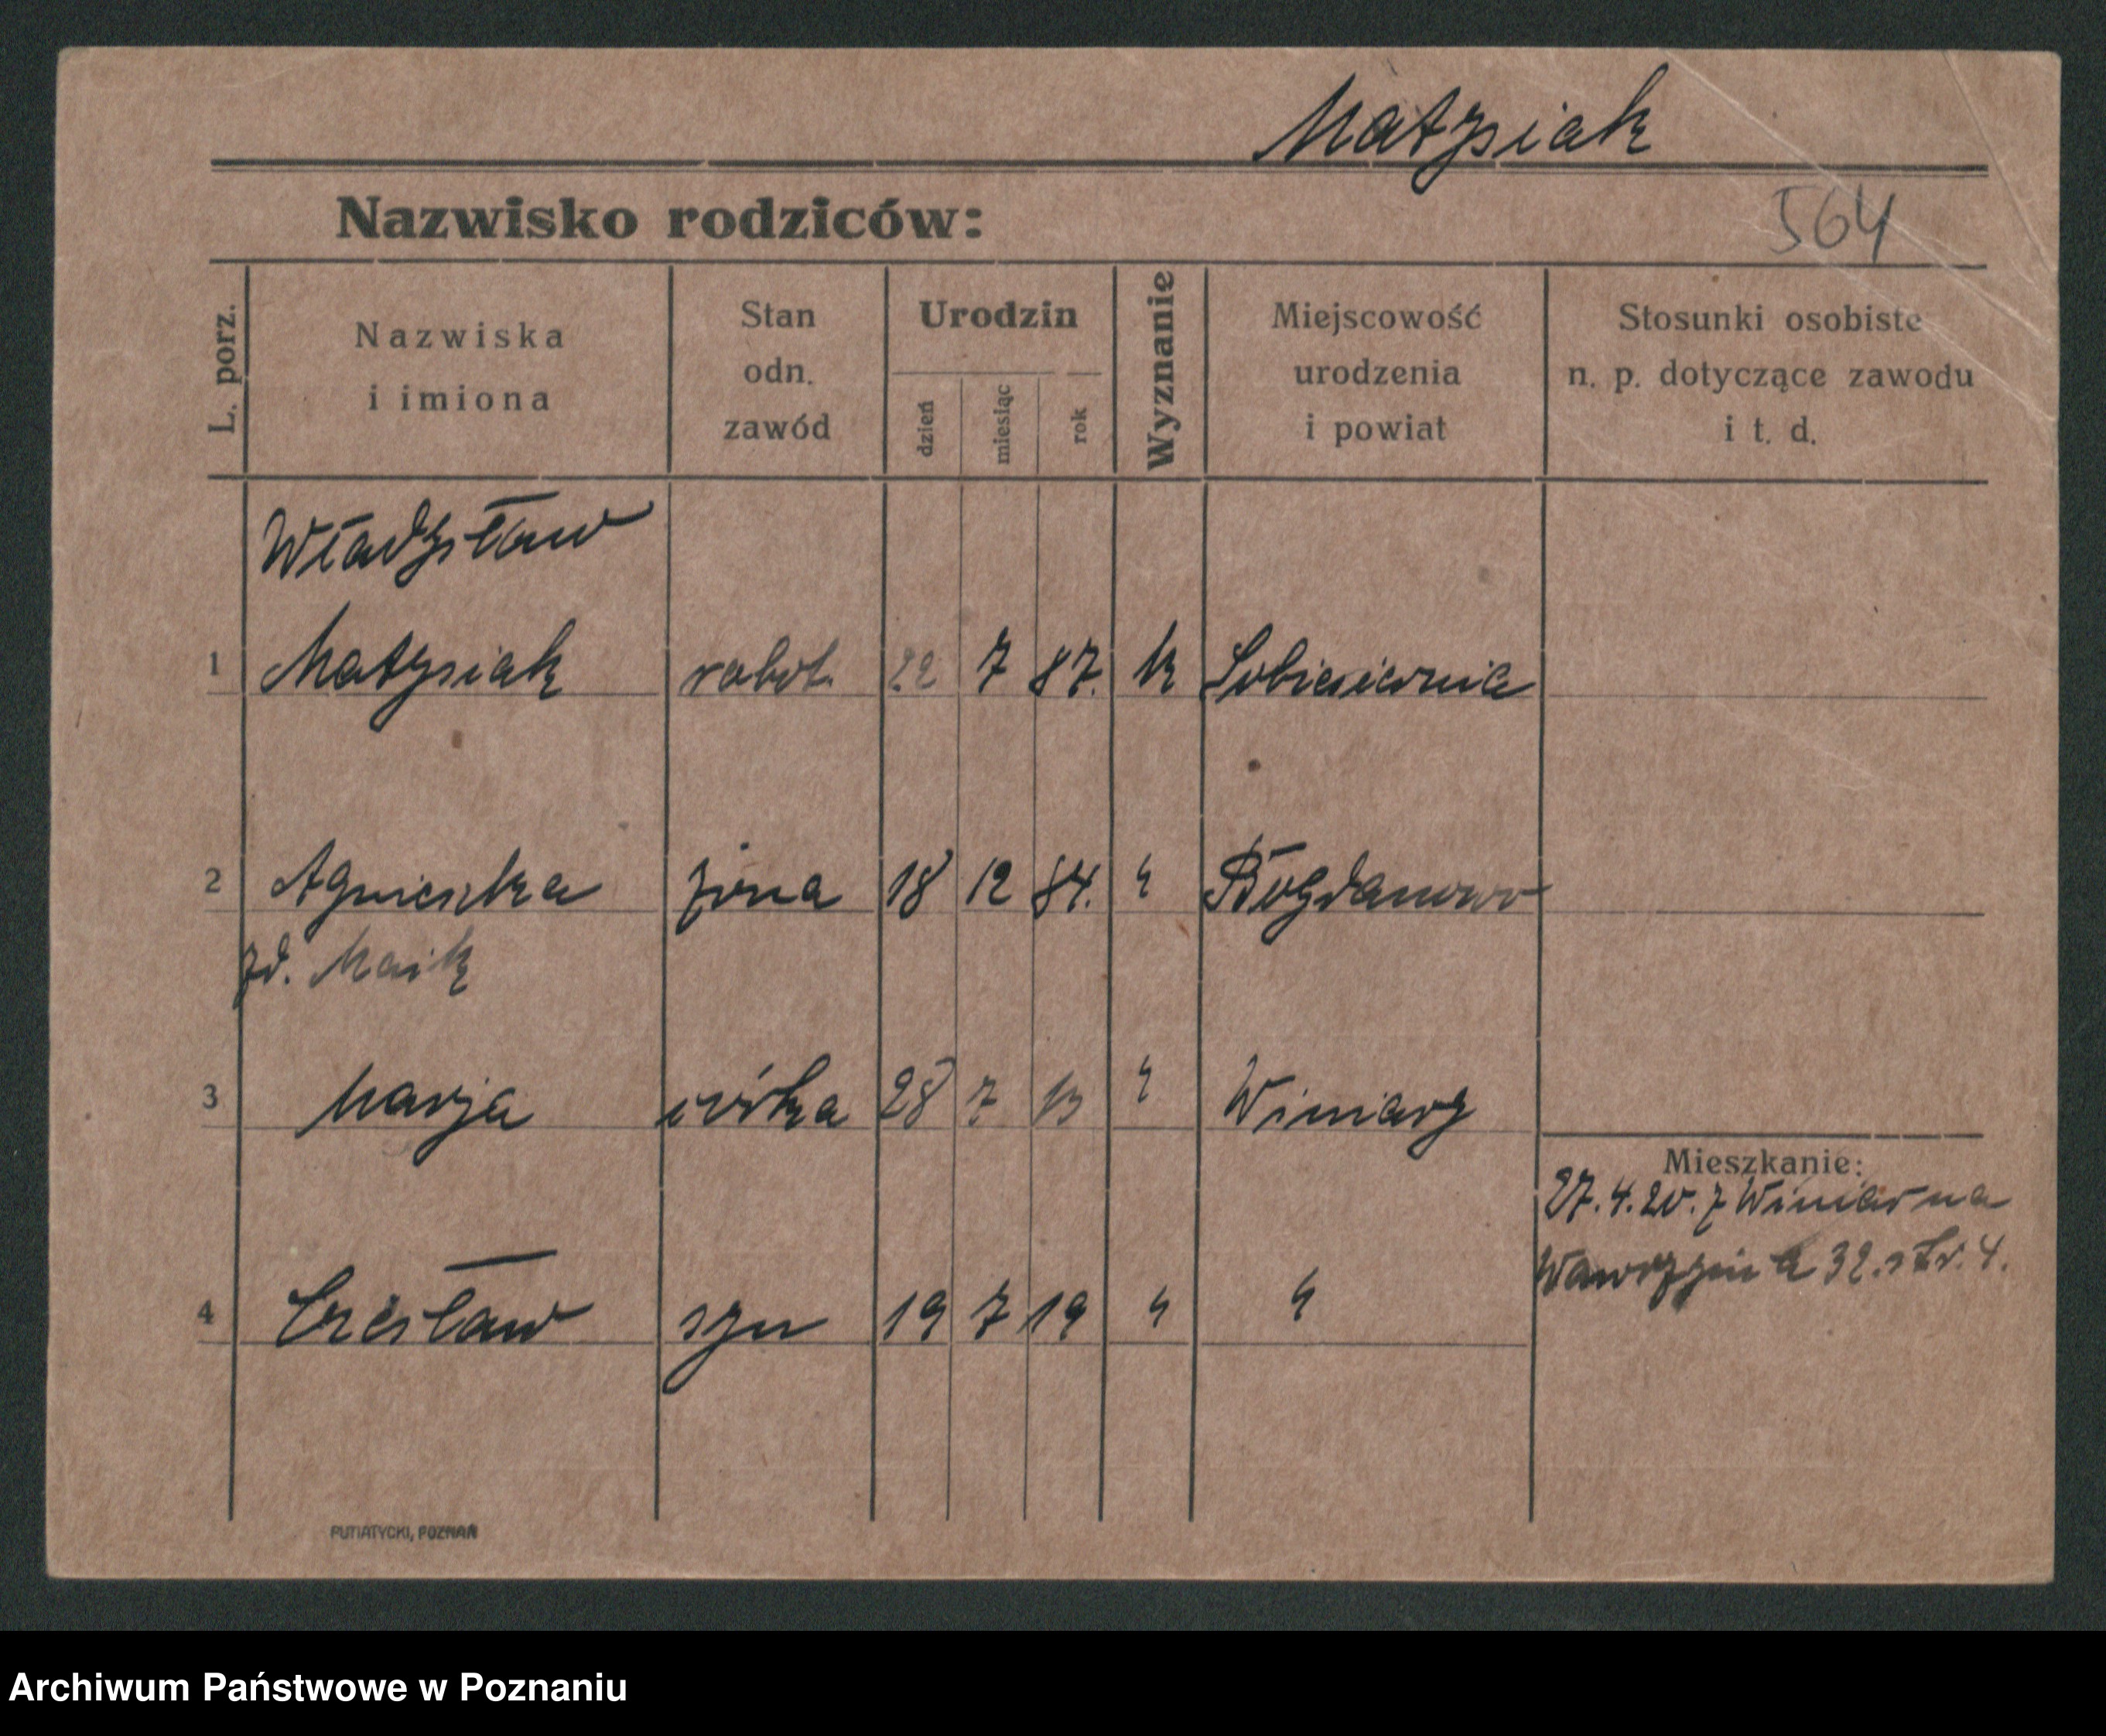 Matysiak
Nazwisko rodziców:
564
L. porz.
Nazwiska
i imiona
Stan
odn.
zawód
Urodzin
dzień
miesiąc
rok
Wyznanie
Miejscowość
urodzenia
i powiat
Stosunki osobiste
n. p. dotyczące zawodu
i t. d.
Władysław
1 Matysiak robot. 22 7 87. k Sobiesiernie
2 Agnieszka żona 18 12 84. " Bogdanowo
zd. Maik
3 Marja córka 28 7 13 " Winiary
Mieszkanie:
27.4.20. z Winiar na
Wawrzyńca 32. str. 4.
4 Czesław syn 19 7 19 " "
PUTIATYCKI, POZNAŃ
Archiwum Państwowe w Poznaniu